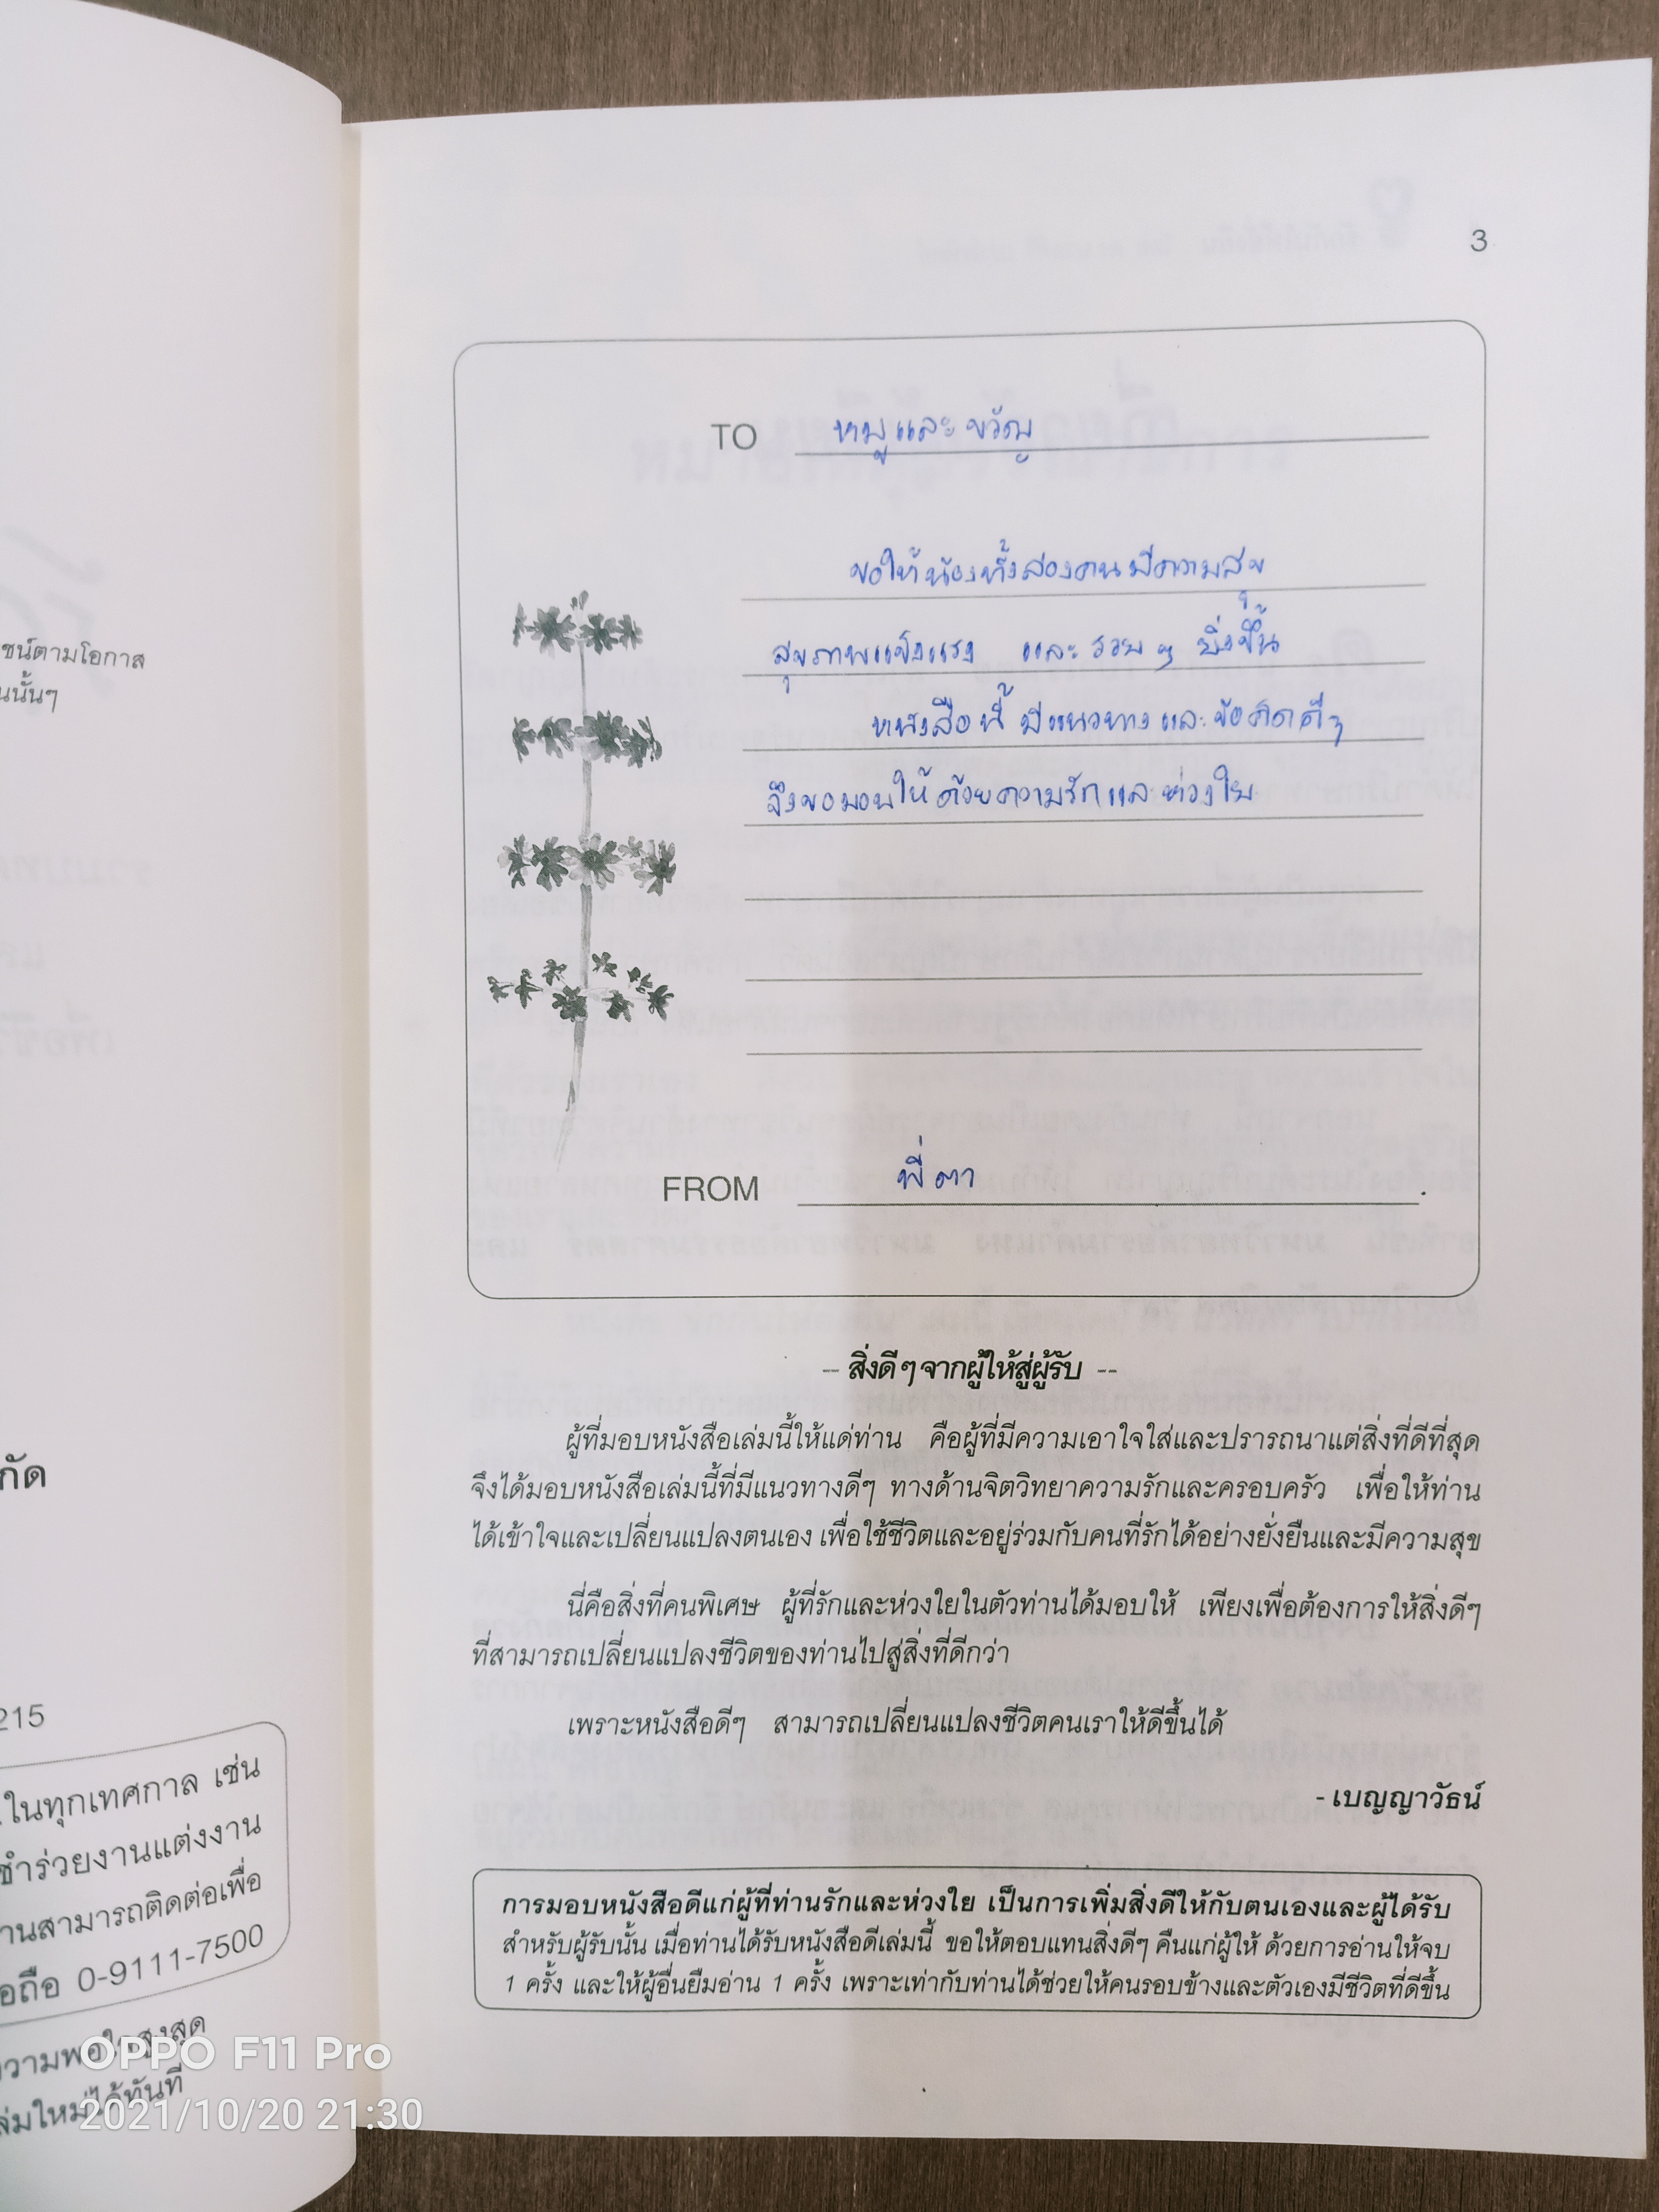 ชน์ตามโอกาส
นนั้นๆ
กัด
215
ในทุกเทศกาล เช่น
ชำร่วยงานแต่งงาน
านสามารถติดต่อเพื่อ
อถือ 0-9111-7500
ความพอใจสูงสุด
ล่มใหม่ได้ทันที
3
TO หมูและขวัญ
ขอให้น้องทั้งสองคนมีความสุข
สุขภาพแข็งแรง และรวย ๆ ยิ่งขึ้น
หนังสือนี้ มีแนวทางและข้อคิดดีๆ
จึงขอมอบให้ด้วยความรักและห่วงใย
FROM พี่ตา
-- สิ่งดีๆ จากผู้ให้สู่ผู้รับ --
ผู้ที่มอบหนังสือเล่มนี้ให้แด่ท่าน คือผู้ที่มีความเอาใจใส่และปรารถนาแต่สิ่งที่ดีที่สุด
จึงได้มอบหนังสือเล่มนี้ที่มีแนวทางดีๆ ทางด้านจิตวิทยาความรักและครอบครัว เพื่อให้ท่าน
ได้เข้าใจและเปลี่ยนแปลงตนเอง เพื่อใช้ชีวิตและอยู่ร่วมกับคนที่รักได้อย่างยั่งยืนและมีความสุข
นี่คือสิ่งที่คนพิเศษ ผู้ที่รักและห่วงใยในตัวท่านได้มอบให้ เพียงเพื่อต้องการให้สิ่งดีๆ
ที่สามารถเปลี่ยนแปลงชีวิตของท่านไปสู่สิ่งที่ดีกว่า
เพราะหนังสือดีๆ สามารถเปลี่ยนแปลงชีวิตคนเราให้ดีขึ้นได้
- เบญญาวัธน์
การมอบหนังสือดีแก่ผู้ที่ท่านรักและห่วงใย เป็นการเพิ่มสิ่งดีให้กับตนเองและผู้ได้รับ
สำหรับผู้รับนั้น เมื่อท่านได้รับหนังสือดีเล่มนี้ ขอให้ตอบแทนสิ่งดีๆ คืนแก่ผู้ให้ ด้วยการอ่านให้จบ
1 ครั้ง และให้ผู้อื่นยืมอ่าน 1 ครั้ง เพราะเท่ากับท่านได้ช่วยให้คนรอบข้างและตัวเองมีชีวิตที่ดีขึ้น
OPPO F11 Pro
2021/10/20 21:30